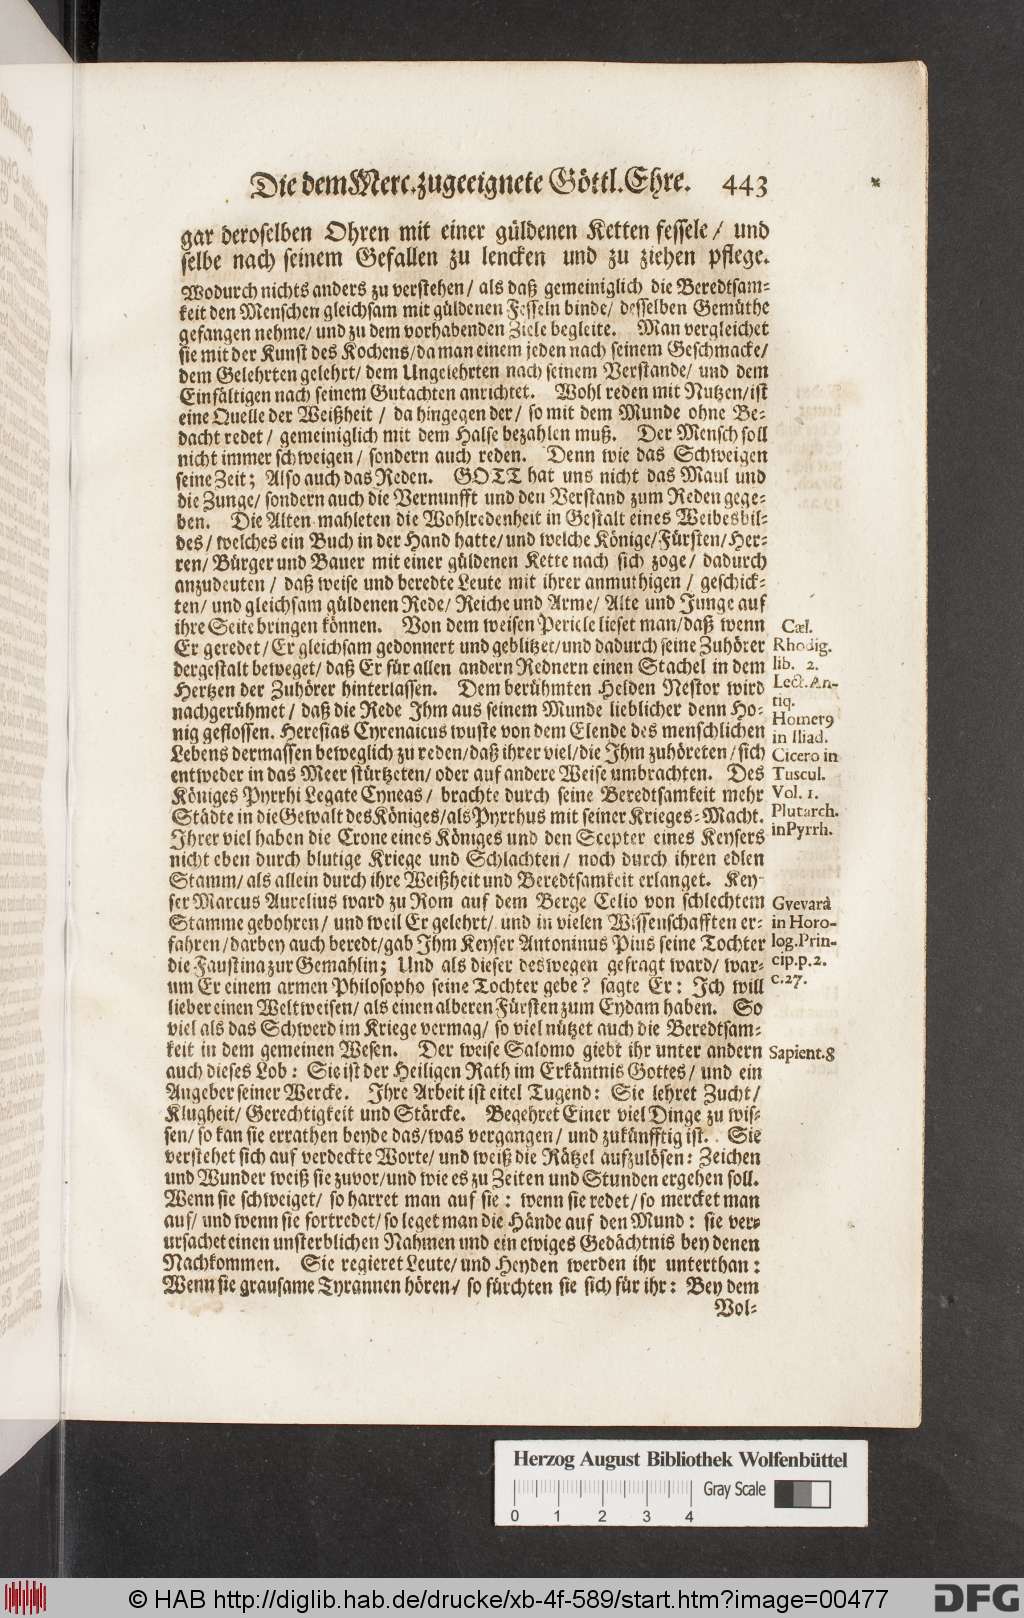 Die dem Merc. zugeeignete Göttl. Ehre. 443
gar deroselben Ohren mit einer güldenen Ketten fessele/ und
selbe nach seinem Gefallen zu lencken und zu ziehen pflege.
Wodurch nichts anders zu verstehen/ als daß gemeiniglich die Beredtsam-
keit den Menschen gleichsam mit güldenen Fesseln binde/ desselben Gemüthe
gefangen nehme/ und zu dem vorhabenden Ziele begleite. Man vergleichet
sie mit der Kunst des Kochens/ da man einem jeden nach seinem Geschmacke/
dem Gelehrten gelehrt/ dem Ungelehrten nach seinem Verstande/ und dem
Einfältigen nach seinem Gutachten anrichtet. Wohl reden mit Nutzen/ ist
eine Quelle der Weißheit / da hingegen der/ so mit dem Munde ohne Be-
dacht redet / gemeiniglich mit dem Halse bezahlen muß. Der Mensch soll
nicht immer schweigen/ sondern auch reden. Denn wie das Schweigen
seine Zeit; Also auch das Reden. GOTT hat uns nicht das Maul und
die Zunge/ sondern auch die Vernunfft und den Verstand zum Reden gege-
ben. Die Alten mahleten die Wohlredenheit in Gestalt eines Weibesbil-
des / welches ein Buch in der Hand hatte/ und welche Könige/ Fürsten/ Her-
ren/ Bürger und Bauer mit einer güldenen Kette nach sich zoge/ dadurch
anzudeuten / daß weise und beredte Leute mit ihrer anmuthigen / geschick-
ten/ und gleichsam güldenen Rede/ Reiche und Arme/ Alte und Junge auf
ihre Seite bringen können. Von dem weisen Pericle lieset man/ daß wenn
Er geredet/ Er gleichsam gedonnert und geblitzet/ und dadurch seine Zuhörer
dergestalt beweget/ daß Er für allen andern Rednern einen Stachel in dem
Hertzen der Zuhörer hinterlassen. Dem berühmten Helden Nestor wird
nachgerühmet / daß die Rede Ihm aus seinem Munde lieblicher denn Ho-
nig geflossen. Heresias Cyrenaicus wuste von dem Elende des menschlichen
Lebens dermassen beweglich zu reden/ daß ihrer viel/ die Ihm zuhöreten / sich
entweder in das Meer stürtzeten/ oder auf andere Weise umbrachten. Des
Königes Pyrrhi Legate Cyneas / brachte durch seine Beredtsamkeit mehr
Städte in die Gewalt des Königes/ als Pyrrhus mit seiner Krieges-Macht.
Ihrer viel haben die Crone eines Königes und den Scepter eines Keysers
nicht eben durch blutige Kriege und Schlachten/ noch durch ihren edlen
Stamm/ als allein durch ihre Weißheit und Beredtsamkeit erlanget. Key-
ser Marcus Aurelius ward zu Rom auf dem Berge Celio von schlechtem
Stamme gebohren / und weil Er gelehrt/ und in vielen Wissenschafften er-
fahren / darbey auch beredt/ gab Ihm Keyser Antoninus Pius seine Tochter
die Faustina zur Gemahlin; Und als dieser deswegen gefragt ward/ war-
um Er einem armen Philosopho seine Tochter gebe? sagte Er: Ich will
lieber einen Weltweisen/ als einen alberen Fürsten zum Eydam haben. So
viel als das Schwerd im Kriege vermag/ so viel nützet auch die Beredtsam-
keit in dem gemeinen Wesen. Der weise Salomo giebt ihr unter andern
auch dieses Lob: Sie ist der Heiligen Rath im Erkäntnis Gottes/ und ein
Angeber seiner Wercke. Ihre Arbeit ist eitel Tugend: Sie lehret Zucht/
Klugheit/ Gerechtigkeit und Stärcke. Begehret Einer viel Dinge zu wis-
sen/ so kan sie errathen beyde das/ was vergangen/ und zukünfftig ist. Sie
verstehet sich auf verdeckte Worte/ und weiß die Rätzel aufzulösen: Zeichen
und Wunder weiß sie zuvor/ und wie es zu Zeiten und Stunden ergehen soll.
Wenn sie schweiget/ so harret man auf sie: wenn sie redet/ so mercket man
auf/ und wenn sie fortredet/ so leget man die Hände auf den Mund: sie ver-
ursachet einen unsterblichen Nahmen und ein ewiges Gedächtnis bey denen
Nachkommen. Sie regieret Leute/ und Heyden werden ihr unterthan:
Wenn sie grausame Tyrannen hören/ so fürchten sie sich für ihr: Bey dem
Vol-
Cæl.
Rhodig.
lib. 2.
Lect. An-
tiq.
Homer9
in Iliad.
Cicero in
Tuscul.
Vol. 1.
Plutarch.
in Pyrrh.
Gvevarà
in Horo-
log. Prin-
cip. p. 2.
c. 27.
Sapient. 8
Herzog August Bibliothek Wolfenbüttel
Gray Scale
0 1 2 3 4
© HAB http://diglib.hab.de/drucke/xb-4f-589/start.htm?image=00477
DFG